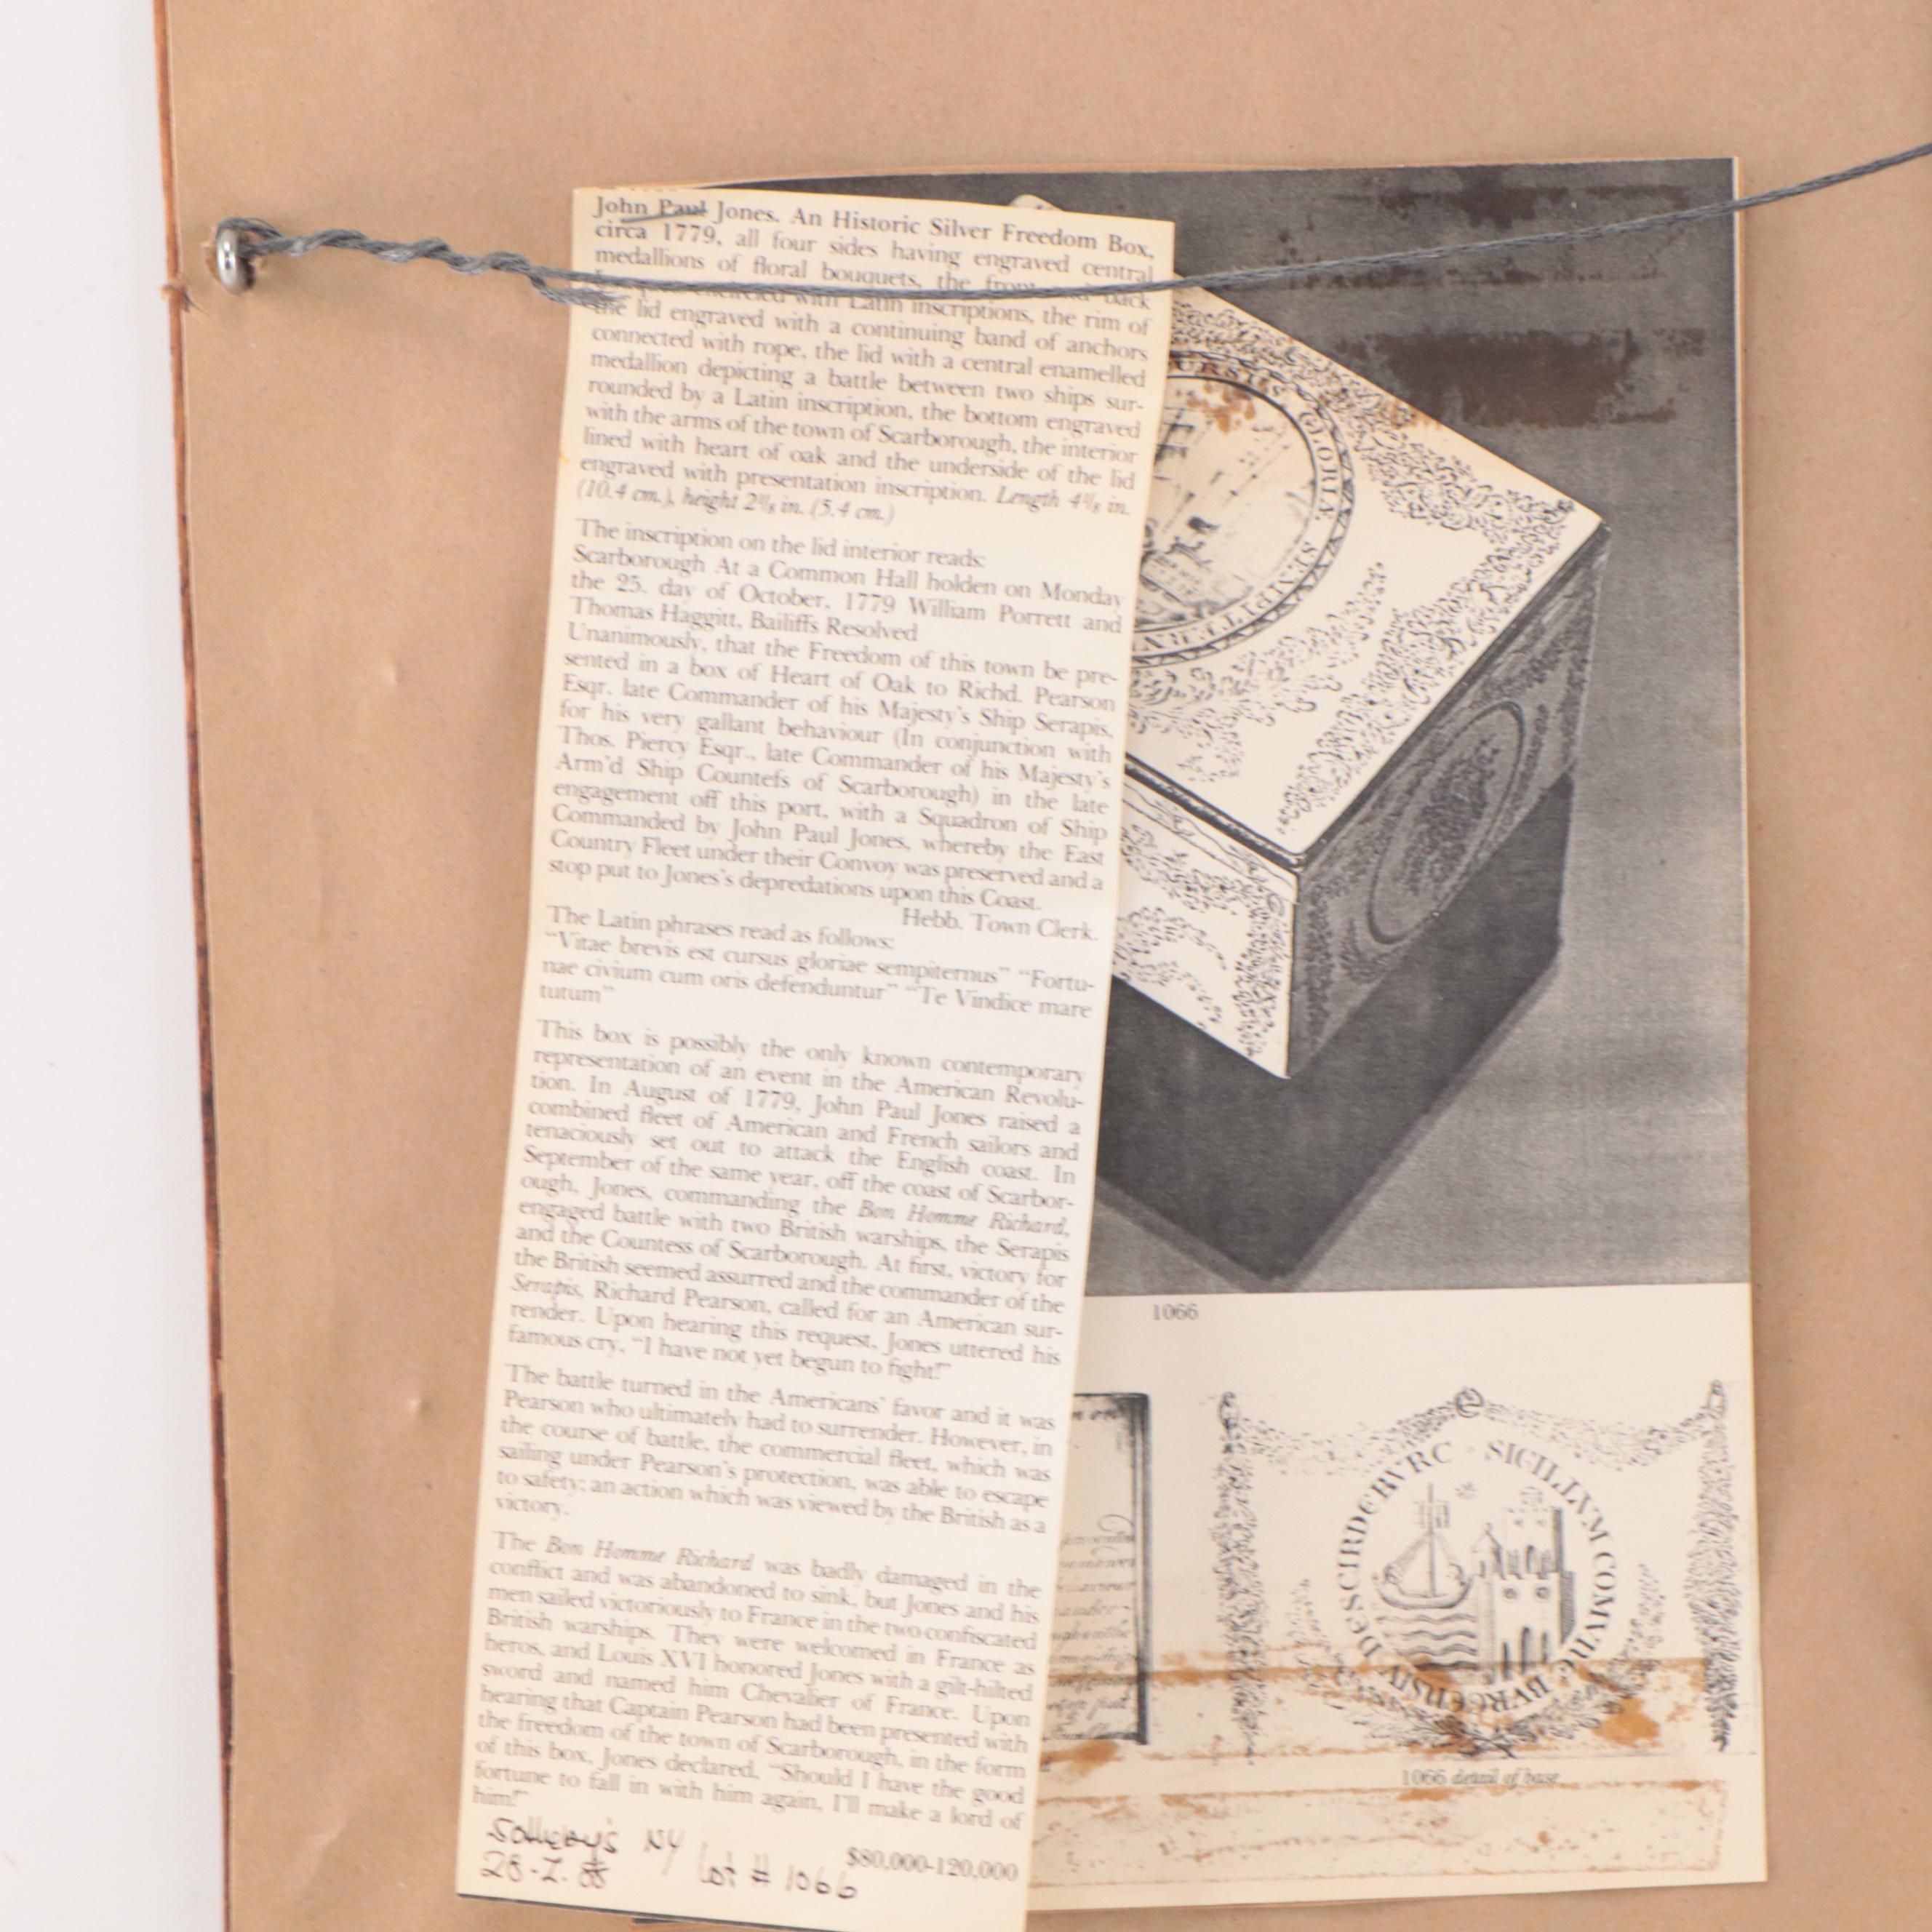 John Paul Jones. An Historic Silver Freedom Box,
circa 1779, all four sides having engraved central
medallions of floral bouquets, the front and back
encircled with Latin inscriptions, the rim of
the lid engraved with a continuing band of anchors
connected with rope, the lid with a central enamelled
medallion depicting a battle between two ships sur-
rounded by a Latin inscription, the bottom engraved
with the arms of the town of Scarborough, the interior
lined with heart of oak and the underside of the lid
engraved with presentation inscription. Length 4⅛ in.
(10.4 cm.), height 2⅛ in. (5.4 cm.)
The inscription on the lid interior reads:
Scarborough At a Common Hall holden on Monday
the 25. day of October, 1779 William Porrett and
Thomas Haggitt, Bailiffs Resolved
Unanimously, that the Freedom of this town be pre-
sented in a box of Heart of Oak to Richd. Pearson
Esqr. late Commander of his Majesty's Ship Serapis,
for his very gallant behaviour (In conjunction with
Thos. Piercy Esqr., late Commander of his Majesty's
Arm'd Ship Countefs of Scarborough) in the late
engagement off this port, with a Squadron of Ship
Commanded by John Paul Jones, whereby the East
Country Fleet under their Convoy was preserved and a
stop put to Jones's depredations upon this Coast.
Hebb. Town Clerk.
The Latin phrases read as follows:
"Vitae brevis est cursus gloriae sempiternus" "Fortu-
nae civium cum oris defenduntur" "Te Vindice mare
tutum"
This box is possibly the only known contemporary
representation of an event in the American Revolu-
tion. In August of 1779, John Paul Jones raised a
combined fleet of American and French sailors and
tenaciously set out to attack the English coast. In
September of the same year, off the coast of Scarbor-
ough, Jones, commanding the Bon Homme Richard,
engaged battle with two British warships, the Serapis
and the Countess of Scarborough. At first, victory for
the British seemed assurred and the commander of the
Serapis, Richard Pearson, called for an American sur-
render. Upon hearing this request, Jones uttered his
famous cry, "I have not yet begun to fight!"
The battle turned in the Americans' favor and it was
Pearson who ultimately had to surrender. However, in
the course of battle, the commercial fleet, which was
sailing under Pearson's protection, was able to escape
to safety; an action which was viewed by the British as a
victory.
The Bon Homme Richard was badly damaged in the
conflict and was abandoned to sink, but Jones and his
men sailed victoriously to France in the two confiscated
British warships. They were welcomed in France as
heros, and Louis XVI honored Jones with a gilt-hilted
sword and named him Chevalier of France. Upon
hearing that Captain Pearson had been presented with
the freedom of the town of Scarborough, in the form
of this box, Jones declared, "Should I have the good
fortune to fall in with him again, I'll make a lord of
him!"
$80,000-120,000
Sotheby's NY lot # 1066
CURSUS GLORIÆ SEMPITERNV
1066
SIGILLVM COMVNE BVRGENSIV DE SCIRDEBVRC
1066 detail of base